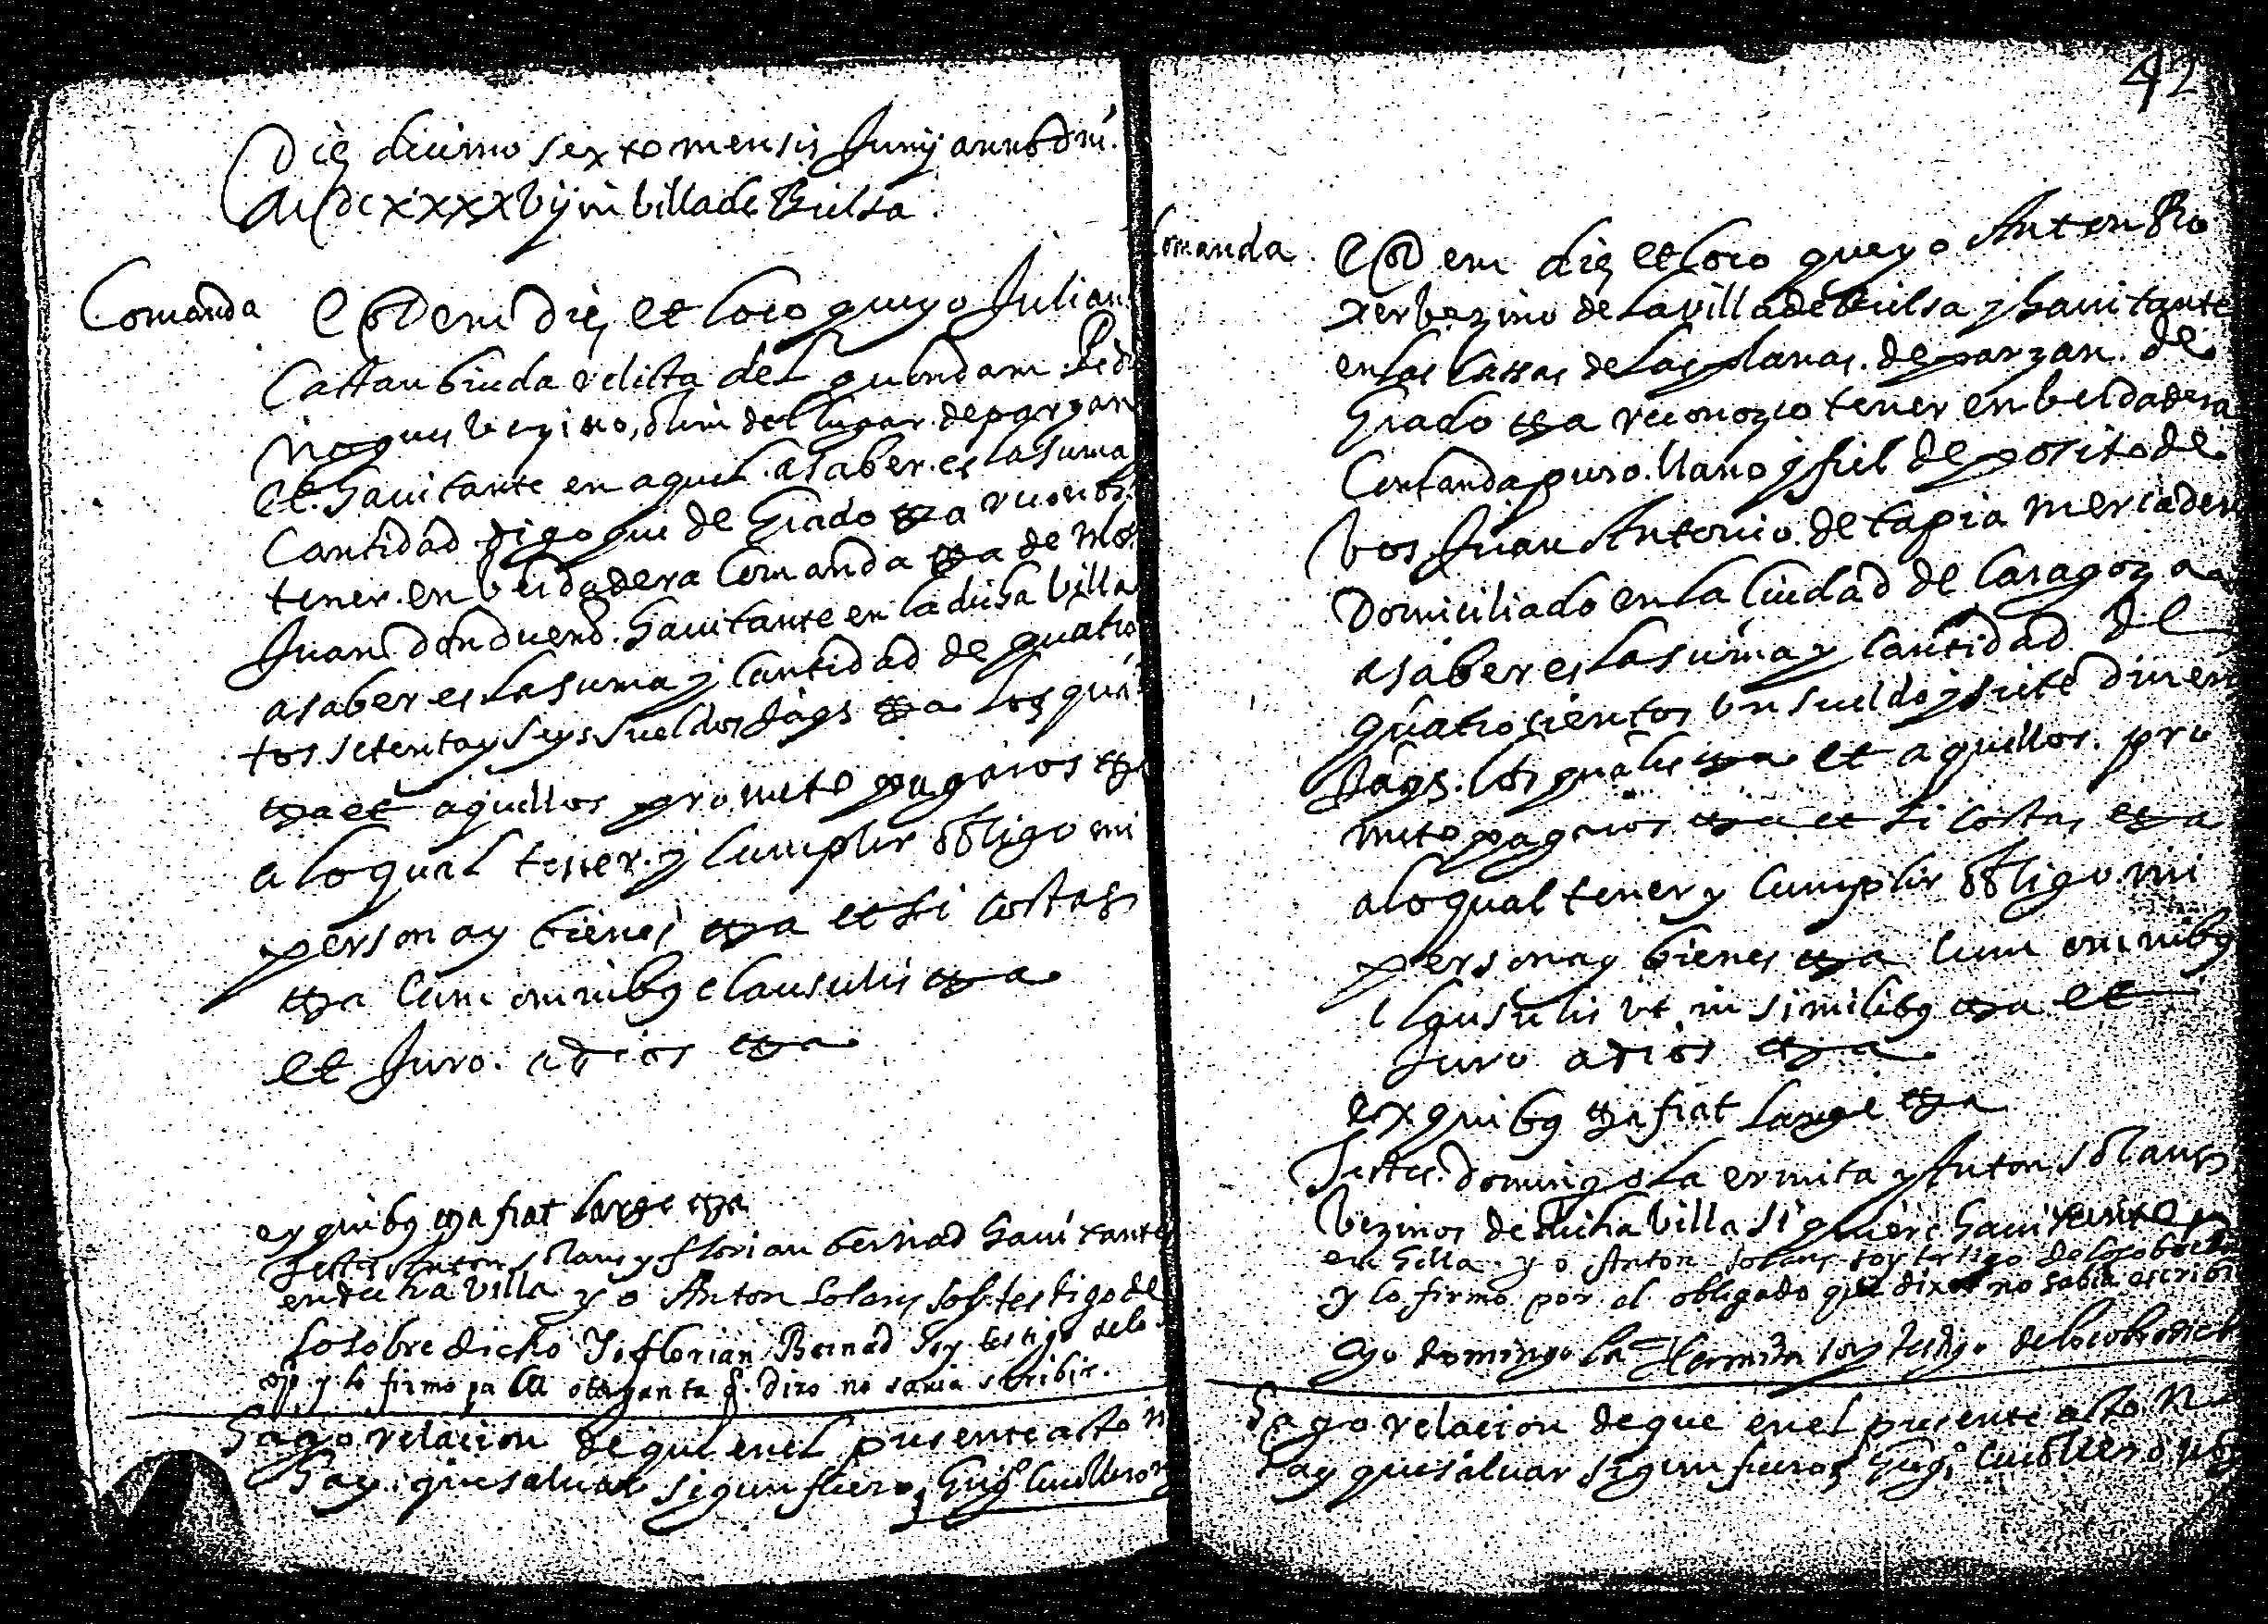 Die decimo sexto mensis Junij anno Dni.
MDCXXXXVij in billa de Bielsa.
Comanda Eodem die et loco que yo Julian
Castan biuda relicta del quondam Ped
Nogues bezino olim del lugar de parzan
et hauitante en aquel. asaber es la suma
Cantidad digo que de Grado etca recono
tener en berdadera Comanda etca de Mo
Juan don duend. hauitante en la dicha billa
asaber es la suma y Cantidad de quatro
tos setenta y seys sueldos Jaqs etca los qua
etca et aquellos prometo pagaros etca
a lo qual tener y Cumplir obligo mi
persona y bienes etca et si costas
etca Cum omnibus clausulis etca
et Juro. a dios etca
ex quibus etca fiat large etca
Testes Anton solans y florian bernad hauitantes
en dicha villa yo Anton solans soy testigo de
lo sobre dicho Yo florian Bernad soy testigo de lo
y lo firmo pa la otorganta q. dixo no sauia scribir.
Hago relacion de que en el presente acto n
hay que saluar segun fuero,
42
Comanda Eodem die et loco que yo Anton
bezino de la villa de Bielsa y hauitante
en las Cassas de las planas de parzan. de
Grado etca reconozco tener en berdadera
Comanda puro. llano y fiel deposito de
bos Juan Antonio de tapia mercader
Domiciliado en la Ciudad de Caragoza
asaber es la suma y Cantidad de
quatrocientos un sueldo y siete diner
Jaqs. los quales etca et aquellos. pro
meto pagaros etca et si costas etca
a lo qual tener y Cumplir obligo mi
persona y bienes etca Cum omnibus
clausulis ut in similibus etca et
Juro a dios etca
ex quibus etca fiat large etca
Testes. domingo la ermita y Anton solans
bezinos de dicha billa siquiere hauitantes
en ella. yo Anton solans soy testigo de lo sobredi
y lo firmo por el obligado que dixo no sabia escribi
Yo domingo la Hermita soy testigo de lo sobredich
Hago relacion de que en el presente acto n
hay que saluar segun fuero,